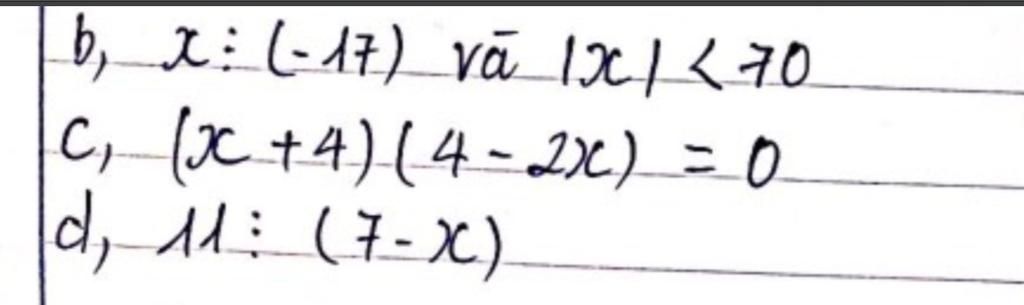 b, x ⋮ (-17) và |x| < 70
c, (x + 4) (4 - 2x) = 0
d, 11 ⋮ (7 - x)